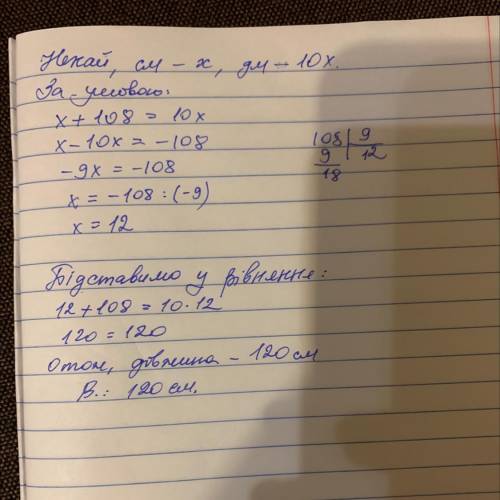 Нехай, см – х, дм – 10х.
За умовою:
х + 108 = 10х
х – 10х = –108
–9х = –108
х = –108 : (–9)
х = 12
108 | 9
9 12
18
Підставимо у рівняння:
12 + 108 = 10 · 12
120 = 120
Отож, довжина – 120 см
В.: 120 см.